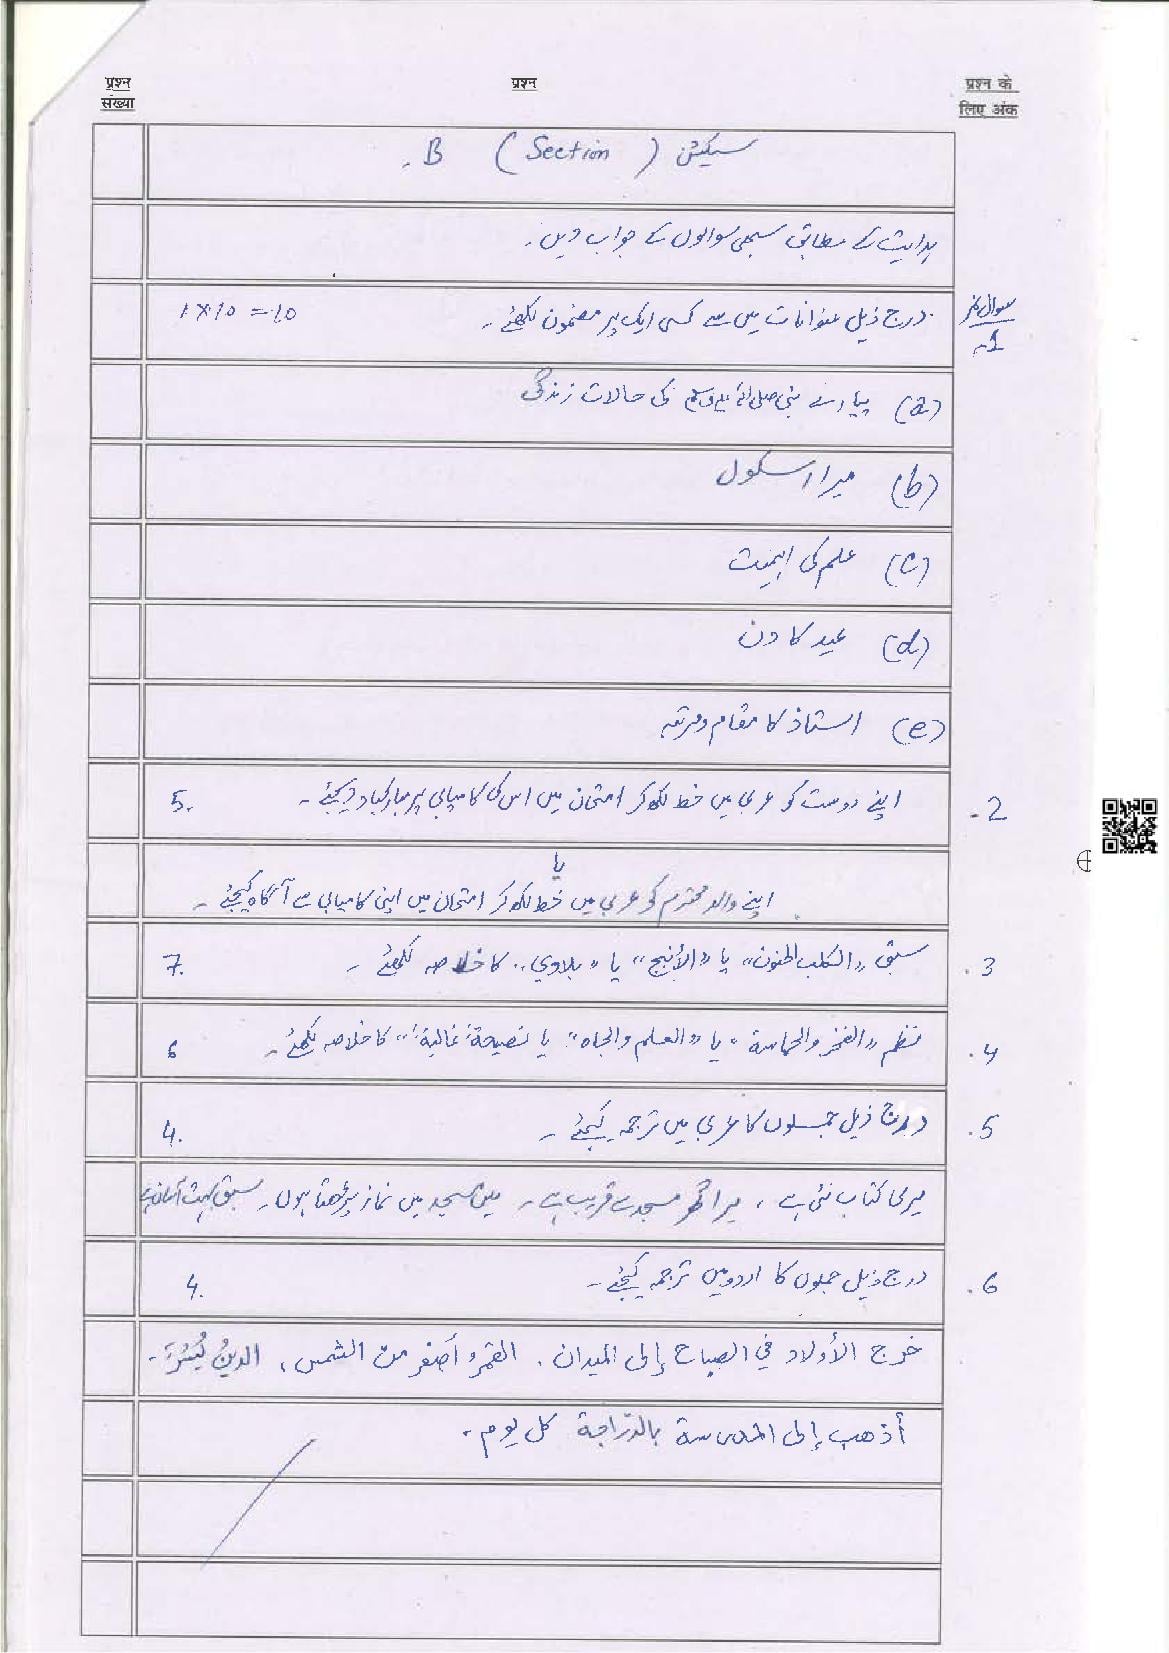 प्रश्न संख्या
प्रश्न
प्रश्न के लिए अंक
سیکشن ( Section ) B -
ہدایت کے مطابق سبھی سوالوں کے جواب دیں۔
سوال نمبر 1- درج ذیل عنوانات میں سے کسی ایک پر مضمون لکھئے۔ 1×10=10
(a) پیارے نبی صلی اللہ علیہ وسلم کی حالات زندگی
(b) میرا اسکول
(c) علم کی اہمیت
(d) عید کا دن
(e) استاذ کا مقام ومرتبہ
2- اپنے دوست کو عربی میں خط لکھ کر امتحان میں اس کی کامیابی پر مبارکباد دیجئے۔ 5.
یا
اپنے والد محترم کو عربی میں خط لکھ کر امتحان میں اپنی کامیابی سے آگاہ کیجئے۔
3. سبق "الكلب الحنون" یا "الأنبج" یا "بلادي" کا خلاصہ لکھئے۔ 7.
4. نظم "الفخر والحماسة" یا "العلم والجاه" یا "نصيحة غالية" کا خلاصہ لکھئے۔ 6
5. درج ذیل جملوں کا عربی میں ترجمہ کیجئے۔ 4.
میری کتاب نئی ہے ، میرا گھر مسجد سے قریب ہے۔ میں مسجد میں نماز پڑھتا ہوں۔ سبق بہت آسان ہے
6. درج ذیل جملوں کا اردو میں ترجمہ کیجئے۔ 4.
خرج الأولاد في الصباح إلى الميدان . القمر أصغر من الشمس ، الدينُ يُسْرٌ -
أذهب إلى المدرسة بالدّراجة كل يوم .